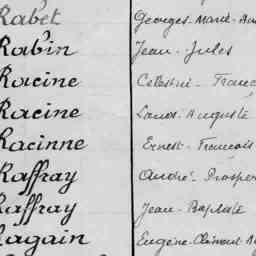 Rabet Georges-Marie-
Rabin Jean-Jules
Racine Célestin-
Racine Louis-Auguste
Racinne Ernest-François
Raffray André-Prosper
Raffray Jean-Baptiste
Ragain Eugène-Clément-